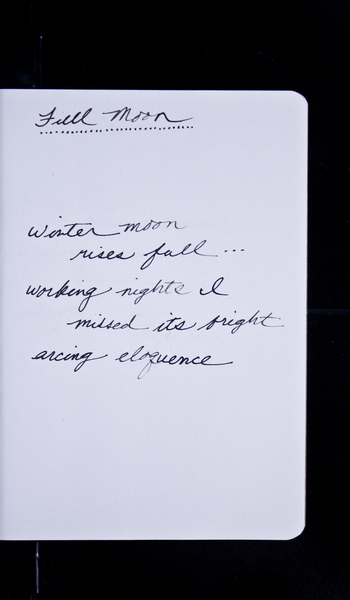 Full Moon
winter moon
rises full ...
working nights I
missed its bright
arcing eloquence